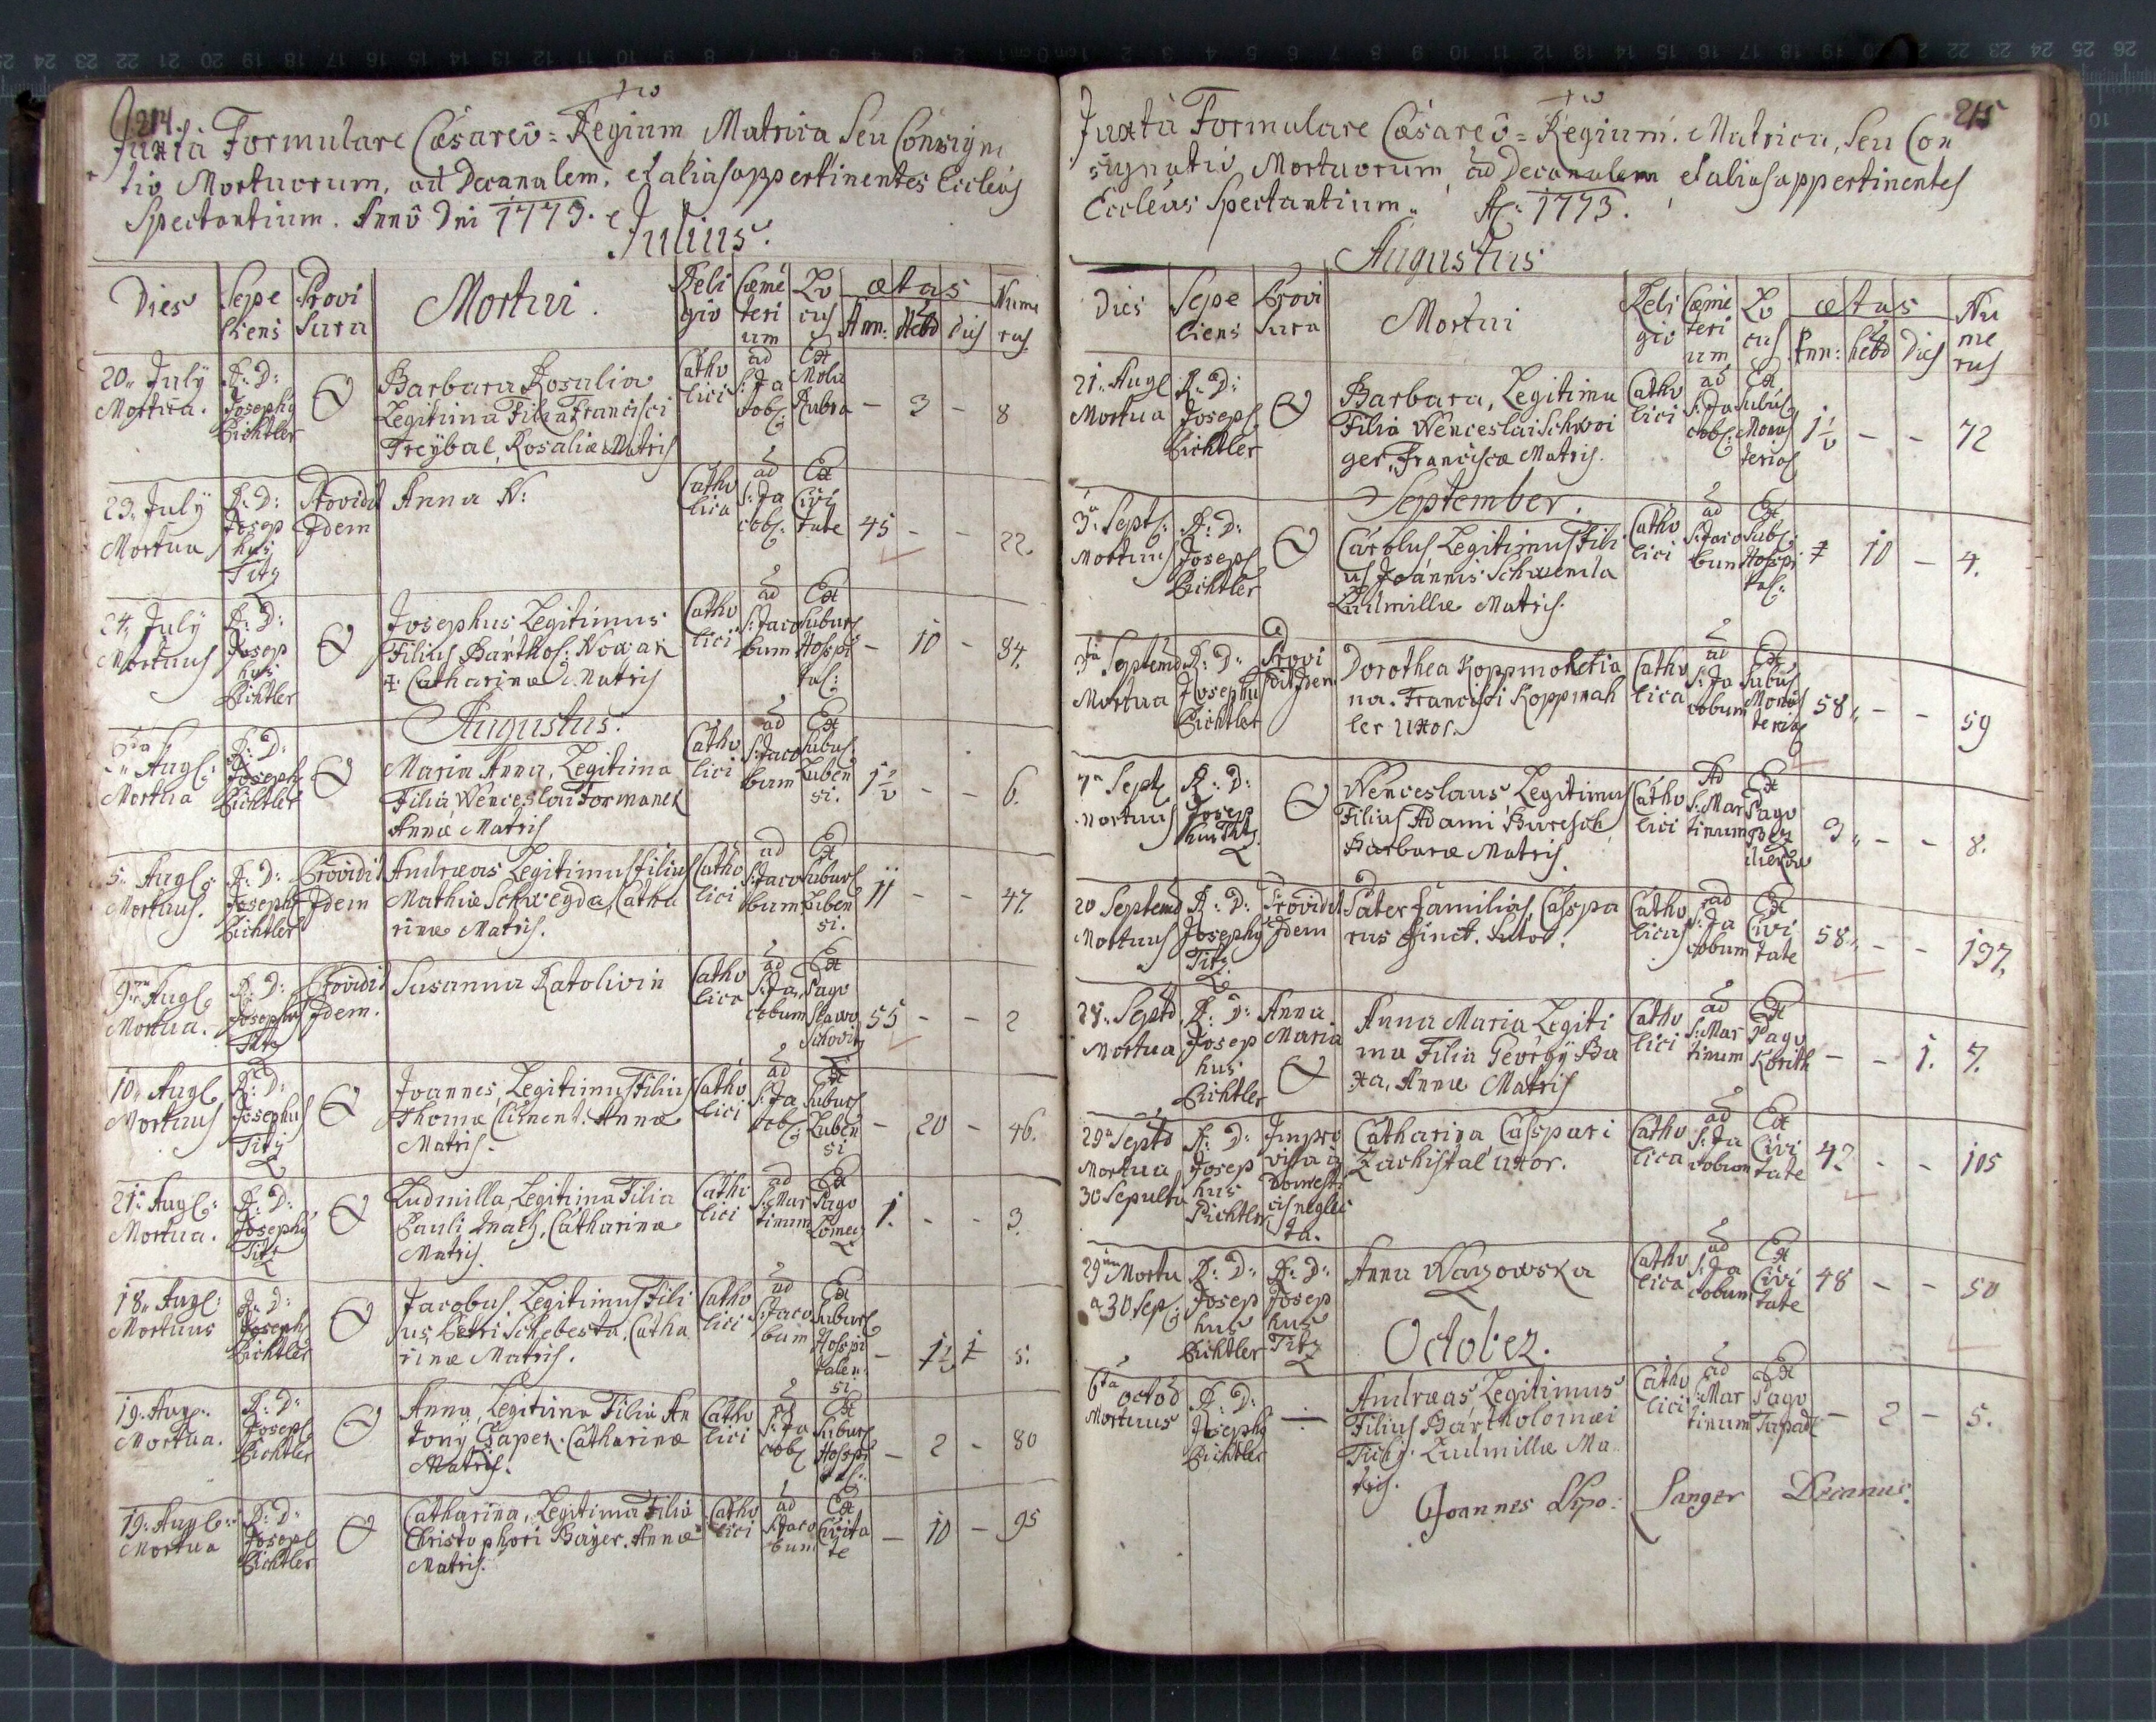 214.
Juxta Formulare Cæsareo=Regium Matrica Seu Consigna
tio Mortuorum, ad Decanalem, et alias appertinentes Eccleās
Spectantium. Anno Dni 1773.
Julius.
Dies Sepe liens Provi sura Mortui. Reli gio Cæme teri um Lo cus ætas Ann: Hebd dies Nume rus
20. July Mortua. R: D: Josephg Pichtler Barbara Rosalia Legitima Filia Francisci Freÿbal, Rosaliæ Matris Catho lici ad S: Ja cob. Ex Mola Rubra – 3 – 8
23. July Mortua R: D: Josep hus Titz Providit Idem Anna N: Catho lica ad S: Ja cob. Ex Civi tate 45 – – 22.
24. July Mortuus R: D: Josep hus Pichtler Josephus Legitimus Filius Barthol: Nowak Catharinæ Matris Catho lici ad S: Jaco bum Ex Suburb Hospi tal: – 10 – 84.
Augustus.
Aug. Mortua R: D: Joseph Pichtler Maria Anna, Legitima Filia Wenceslai Formanek Annæ Matris Catho lici ad S: Jaco bum Ex Subur. Luben si. 1½ – – 6.
5. Aug. Mortuus. R: D: Josephg Pichtler Providit Idem Andræas Legitimus filius Mathiæ Schwegda, Catha rinæ Matris. Catho lici ad S: Jaco bum Ex Suburb Luben si. 11 – – 47.
9na Aug. Mortua. R: D: Josephus Titz Providit Idem. Susanna Ratolivin Catho lica ad S: Ja cobum Ex Pago Slawo 55 – – 2
10. Aug. Mortuus R: D: Josephus Titz Joannes, Legitimus Filius Thomæ Climent. Annæ Matris. Catho lici ad S: Ja cob. Ex Suburb Luben si – 20 – 46.
21. Aug. Mortua. R: D: Josephg Titz Ludmilla, Legitima Filia Pauli Mach, Catharinæ Matris. Catho lici ad S: Mar tinum Ex Pago Lomez 1. – – 3.
18. Aug. Mortuus R: D: Joseph Pichtler Jacobus, Legitimus Fili us Petri Schebesta, Catha rinæ Matris. Catho lici ad S: Jaco bum Ex Suburb Hospi talen: si – 1½ – 5.
19. Aug. Mortua. R: D: Joseph Pichtler Anna, Legitima Filia An tonÿ Czapek. Catharinæ Matris. Catho lici ad S: Ja cob Ex Suburb Hospi tal: – 2 – 80
19. Aug. Mortua R: D: Joseph Pichtler Catharina, Legitima Filia Christophori Bayer. Annæ Matris. Catho lici ad S: Jaco bum Ex Civita te – 10 – 95
215
Juxta Formulare Cæsareo=Regium. Matrica, Seu Con
signatio Mortuorum, ad Decanalem et alias appertinentes
Eccleās Spectantium. A: 1773.
Augustus
Dies Sepe liens Provi sura Mortui Reli gio Cæme teri um Lo cus ætas Ann: hebd Dies Nu me rus
21. Aug Mortua R: D: Joseph Pichtler Barbara, Legitima Filia Wenceslai Schwoi ger, Franciscæ Matris. Catho lici ad S: Ja cob. Ex Subus Monas terios 1½ – – 72
September.
3a Sept. Mortuus R: D: Joseph Pichtler Carolus Legitimus Fili us Joannis Schwemla Ludmillæ Matris. Catho lici ad S: Jaco bum Ex Sub. Hospi tal: 10 – 4.
Septemb Mortua R: D: Josephu Pichtler Provi dit Idem Dorothea Koppmohelia na. Francisci Koppmah ler Uxor. Catho lica ad S: Ja cobum Ex Subus Monas terios 58 – – 59
7a Sept Mortuus R: D: Josep hus Titz Wenceslaus Legitimus Filius Adami Buresch, Barbaræ Matris. Catho lici Ad S: Mar tinum Ex Pago 3 – – 8.
20 Septemb Mortuus R: D: Josephg Titz Providit Idem Pater familias, Caspa rus Ginct. Sutor. Catho licus ad S: Ja cobum Ex Civi tate 58 – – 197.
Septb Mortua R: D: Josep hus Pichtler Anna Maria Anna Maria Legiti ma Filia Georgÿ Ba xa, Annæ Matris Catho lici ad S: Mar tinum Ex Pago Korith – – 1. 7.
29a Septb Mortua 30 Sepulta R: D: Josep hus Pichtler Impro visa à Domesti cis neglec ta. Catharina, Caspari Zachistal uxor. Catho lica ad S: Ja cobum Ex Civi tate 42 – – 105
29na Mortu a 30 Sep. R: D: Josep hus Pichtler R: D: Josep hus Titz Anna Wazowska Catho lica ad S: Ja cobum Ex Civi tate 48 – – 50
October.
6ta octob Mortuus R: D: Josephg Pichtler – Andræas Legitimus Filius Bartholomæi Tichÿ. Ludmillæ Ma tris. Catho lici ad S: Mar tinum Ex Pago – 2 – 5.
Joannes Langer Decanus.